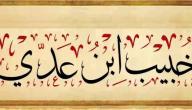 خُبيب ابن عَديّ